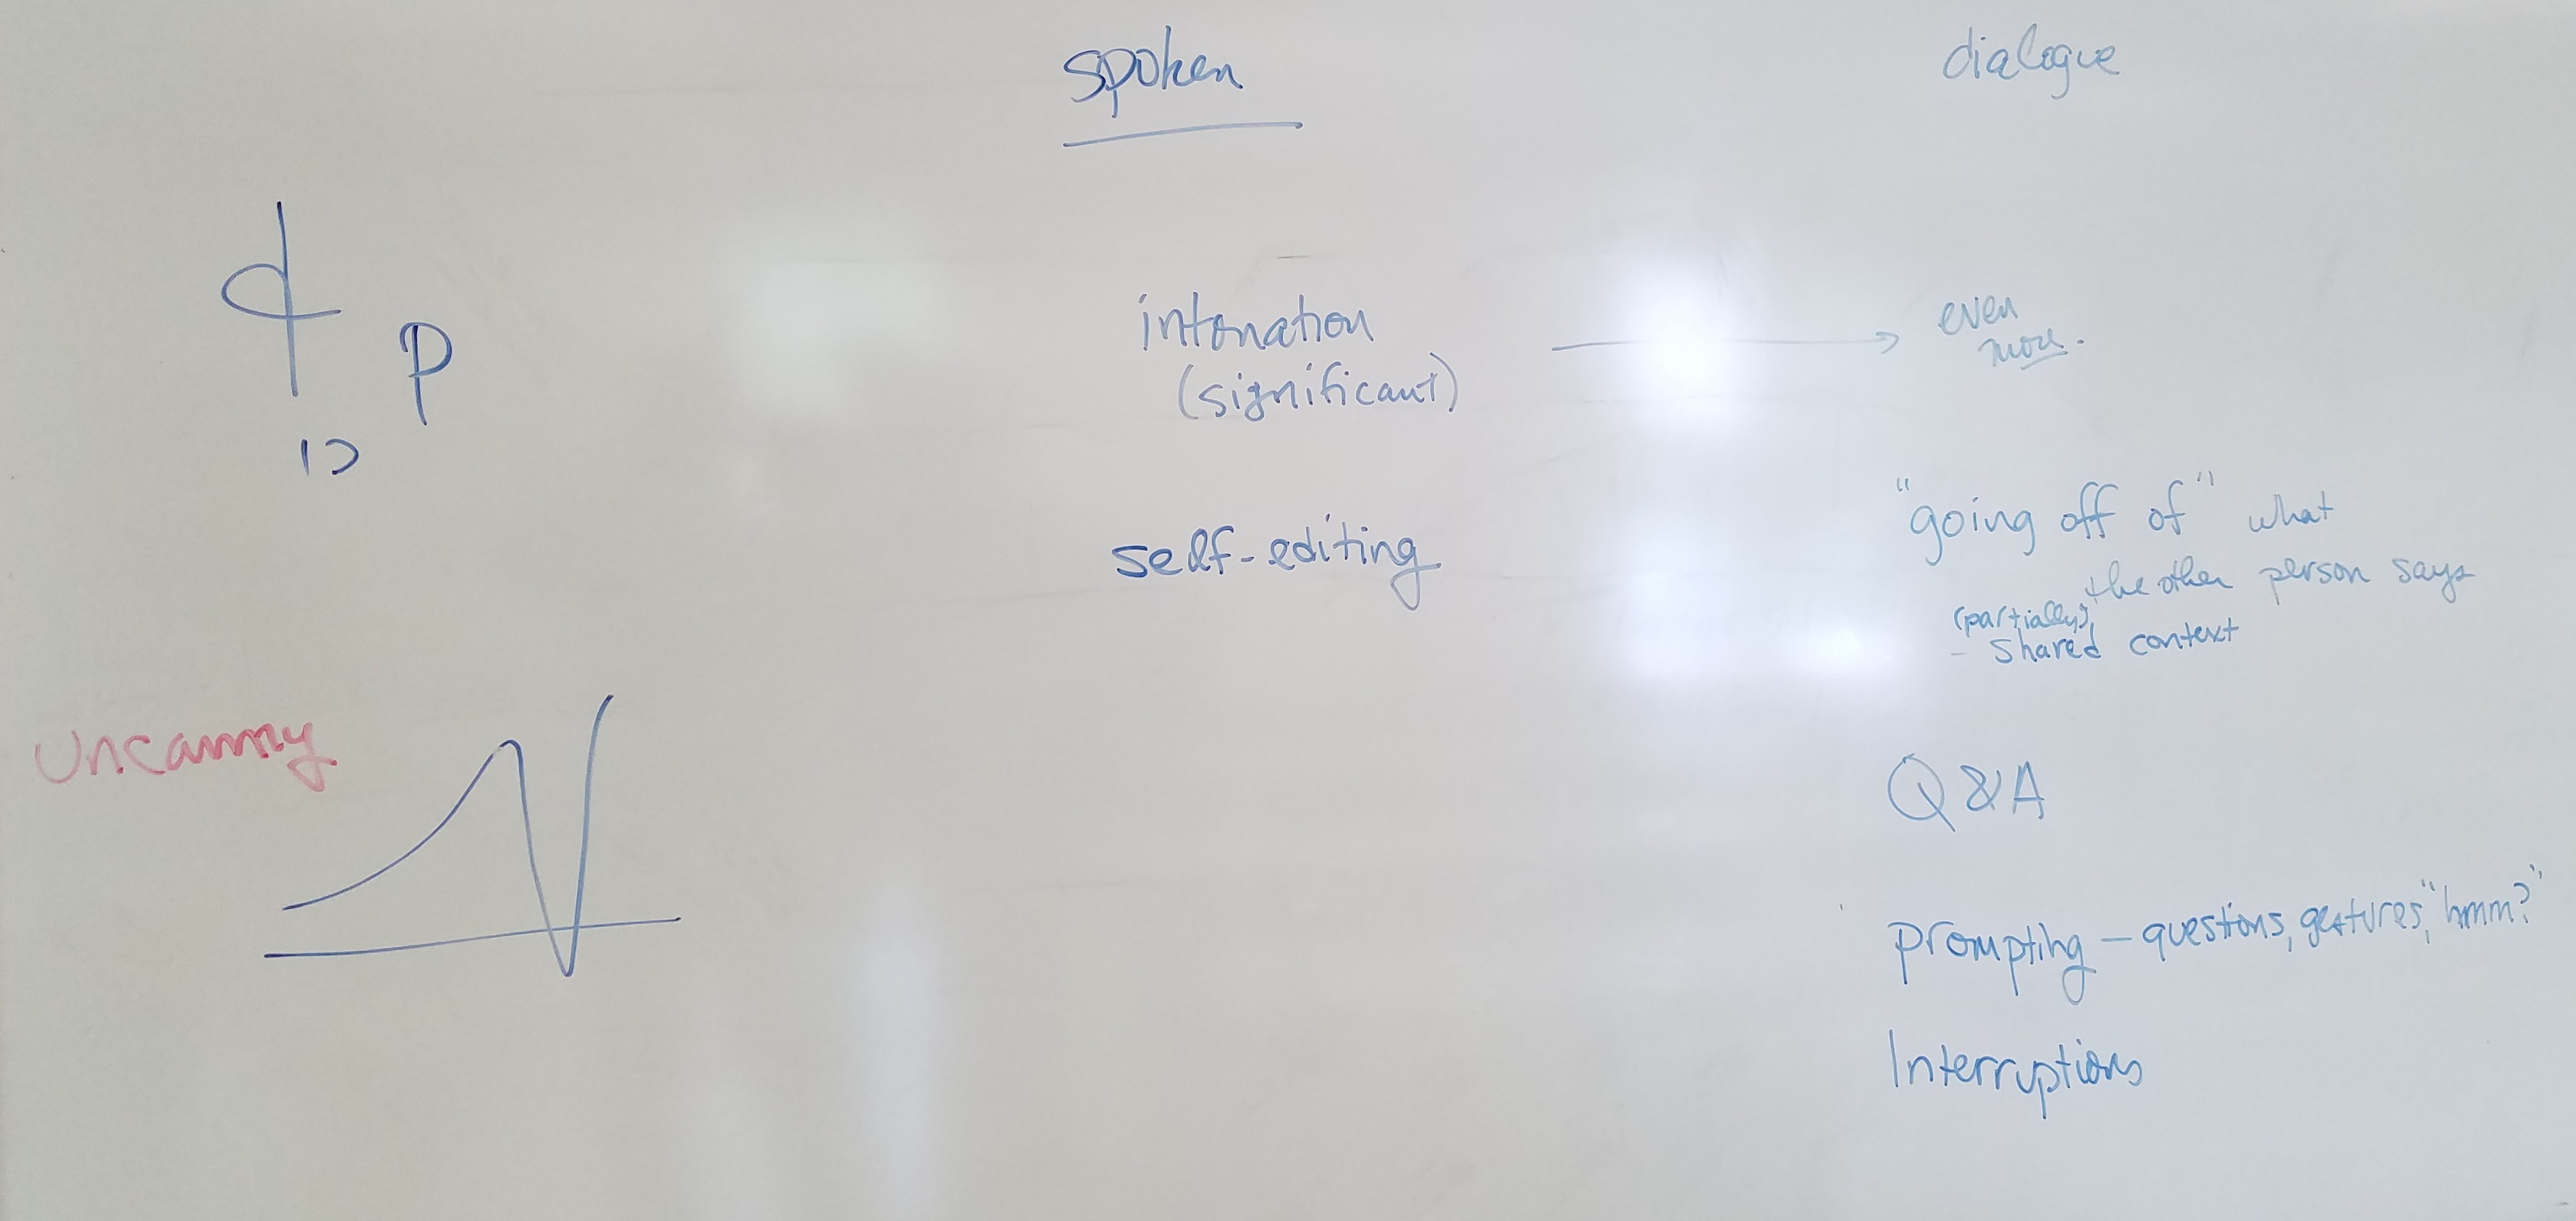 spoken
dialogue
p
intonation
(significant)
even
more.
self-editing
"going off of" what
the other person says
(partially)
- shared context
Uncanny
Q & A
prompting - questions, gestures, "hmm?"
Interruptions